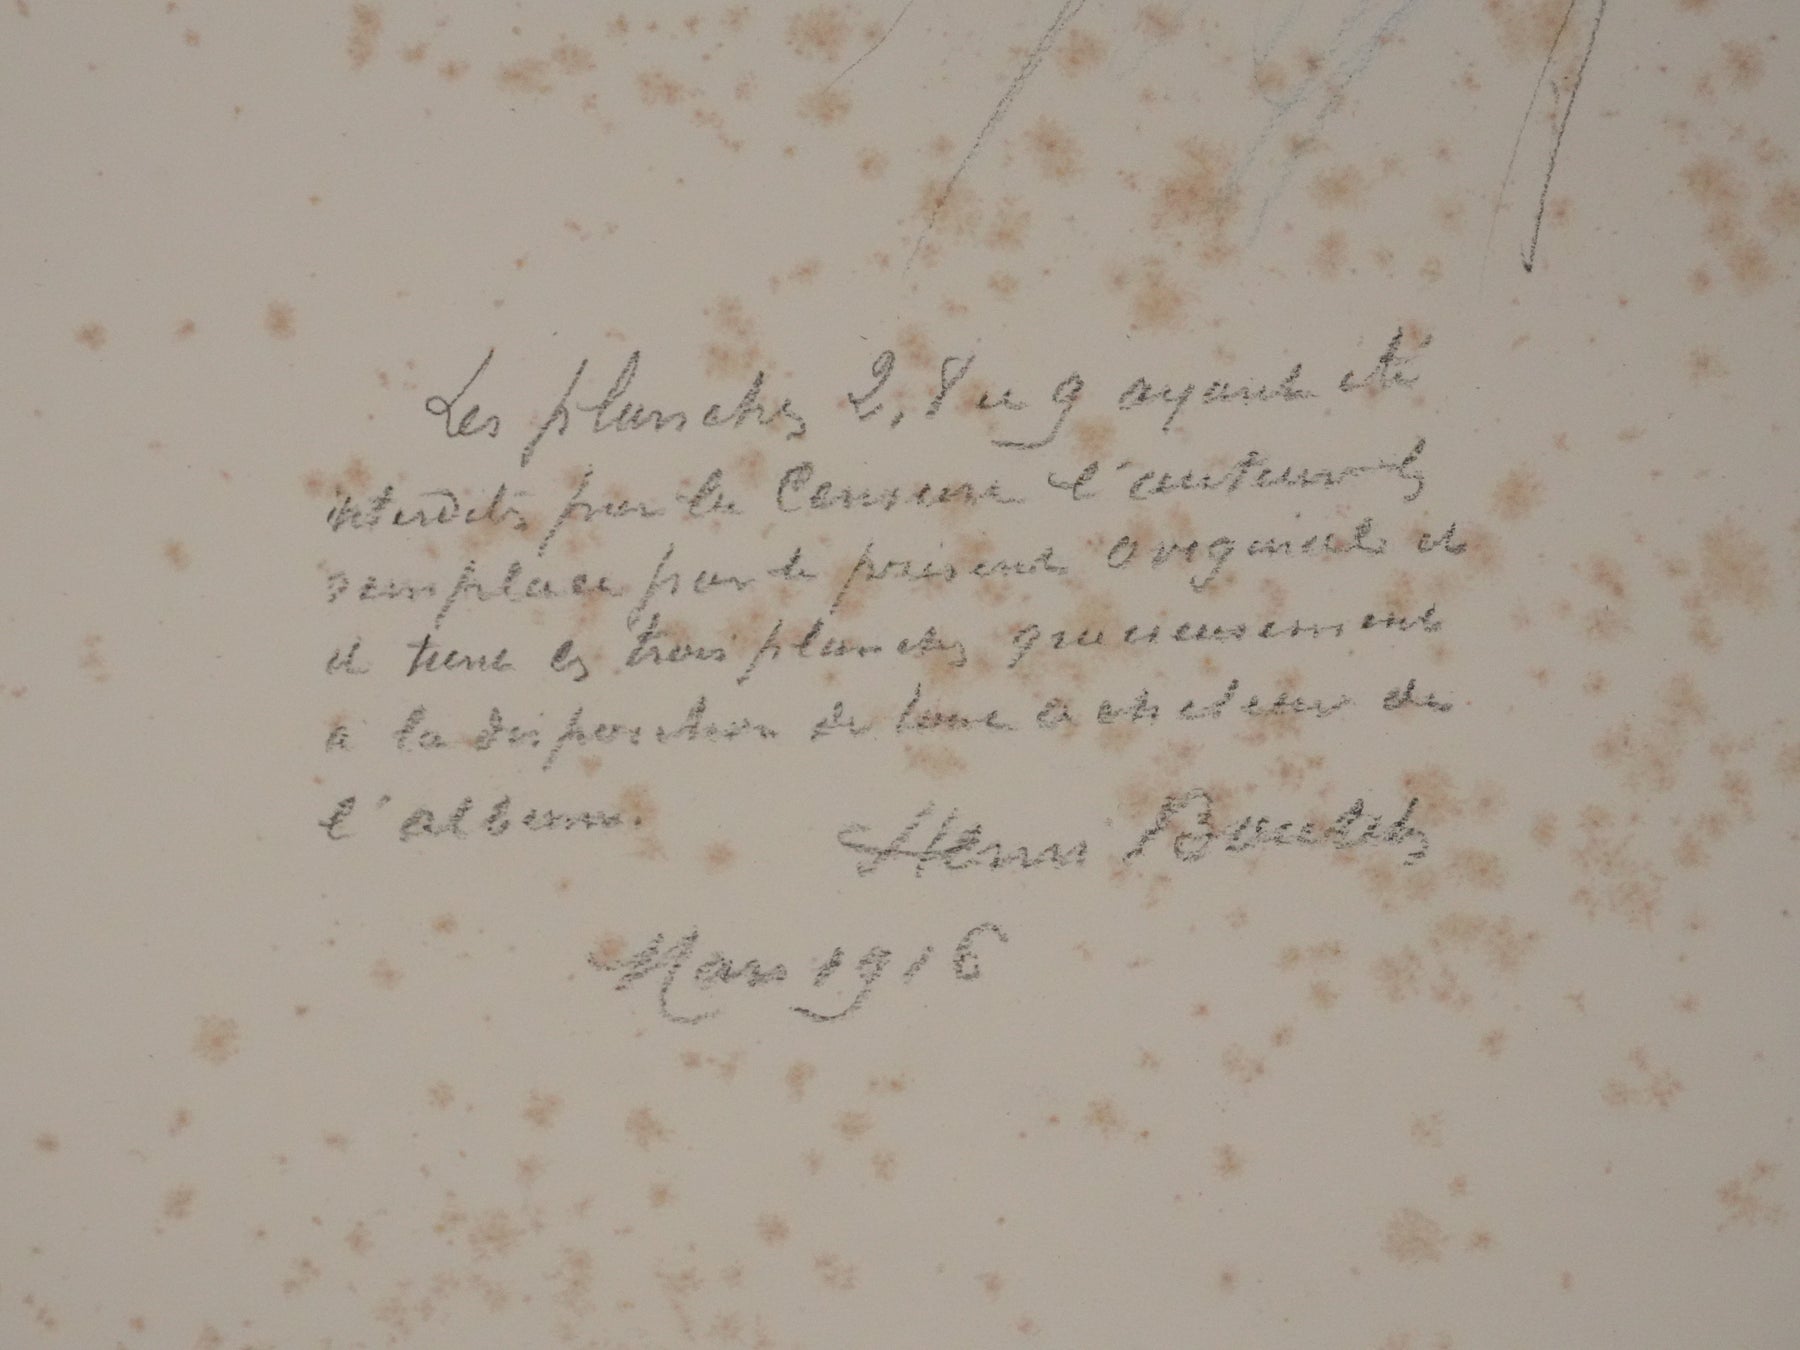 Les planches 2, 8 et 9 ayant été
interdites par la Censure l'auteur les
remplace par le présent original et
et tient les trois planches gracieusement
à la disposition de tout acheteur de
l'album.
Henri Boutet
Mars 1916